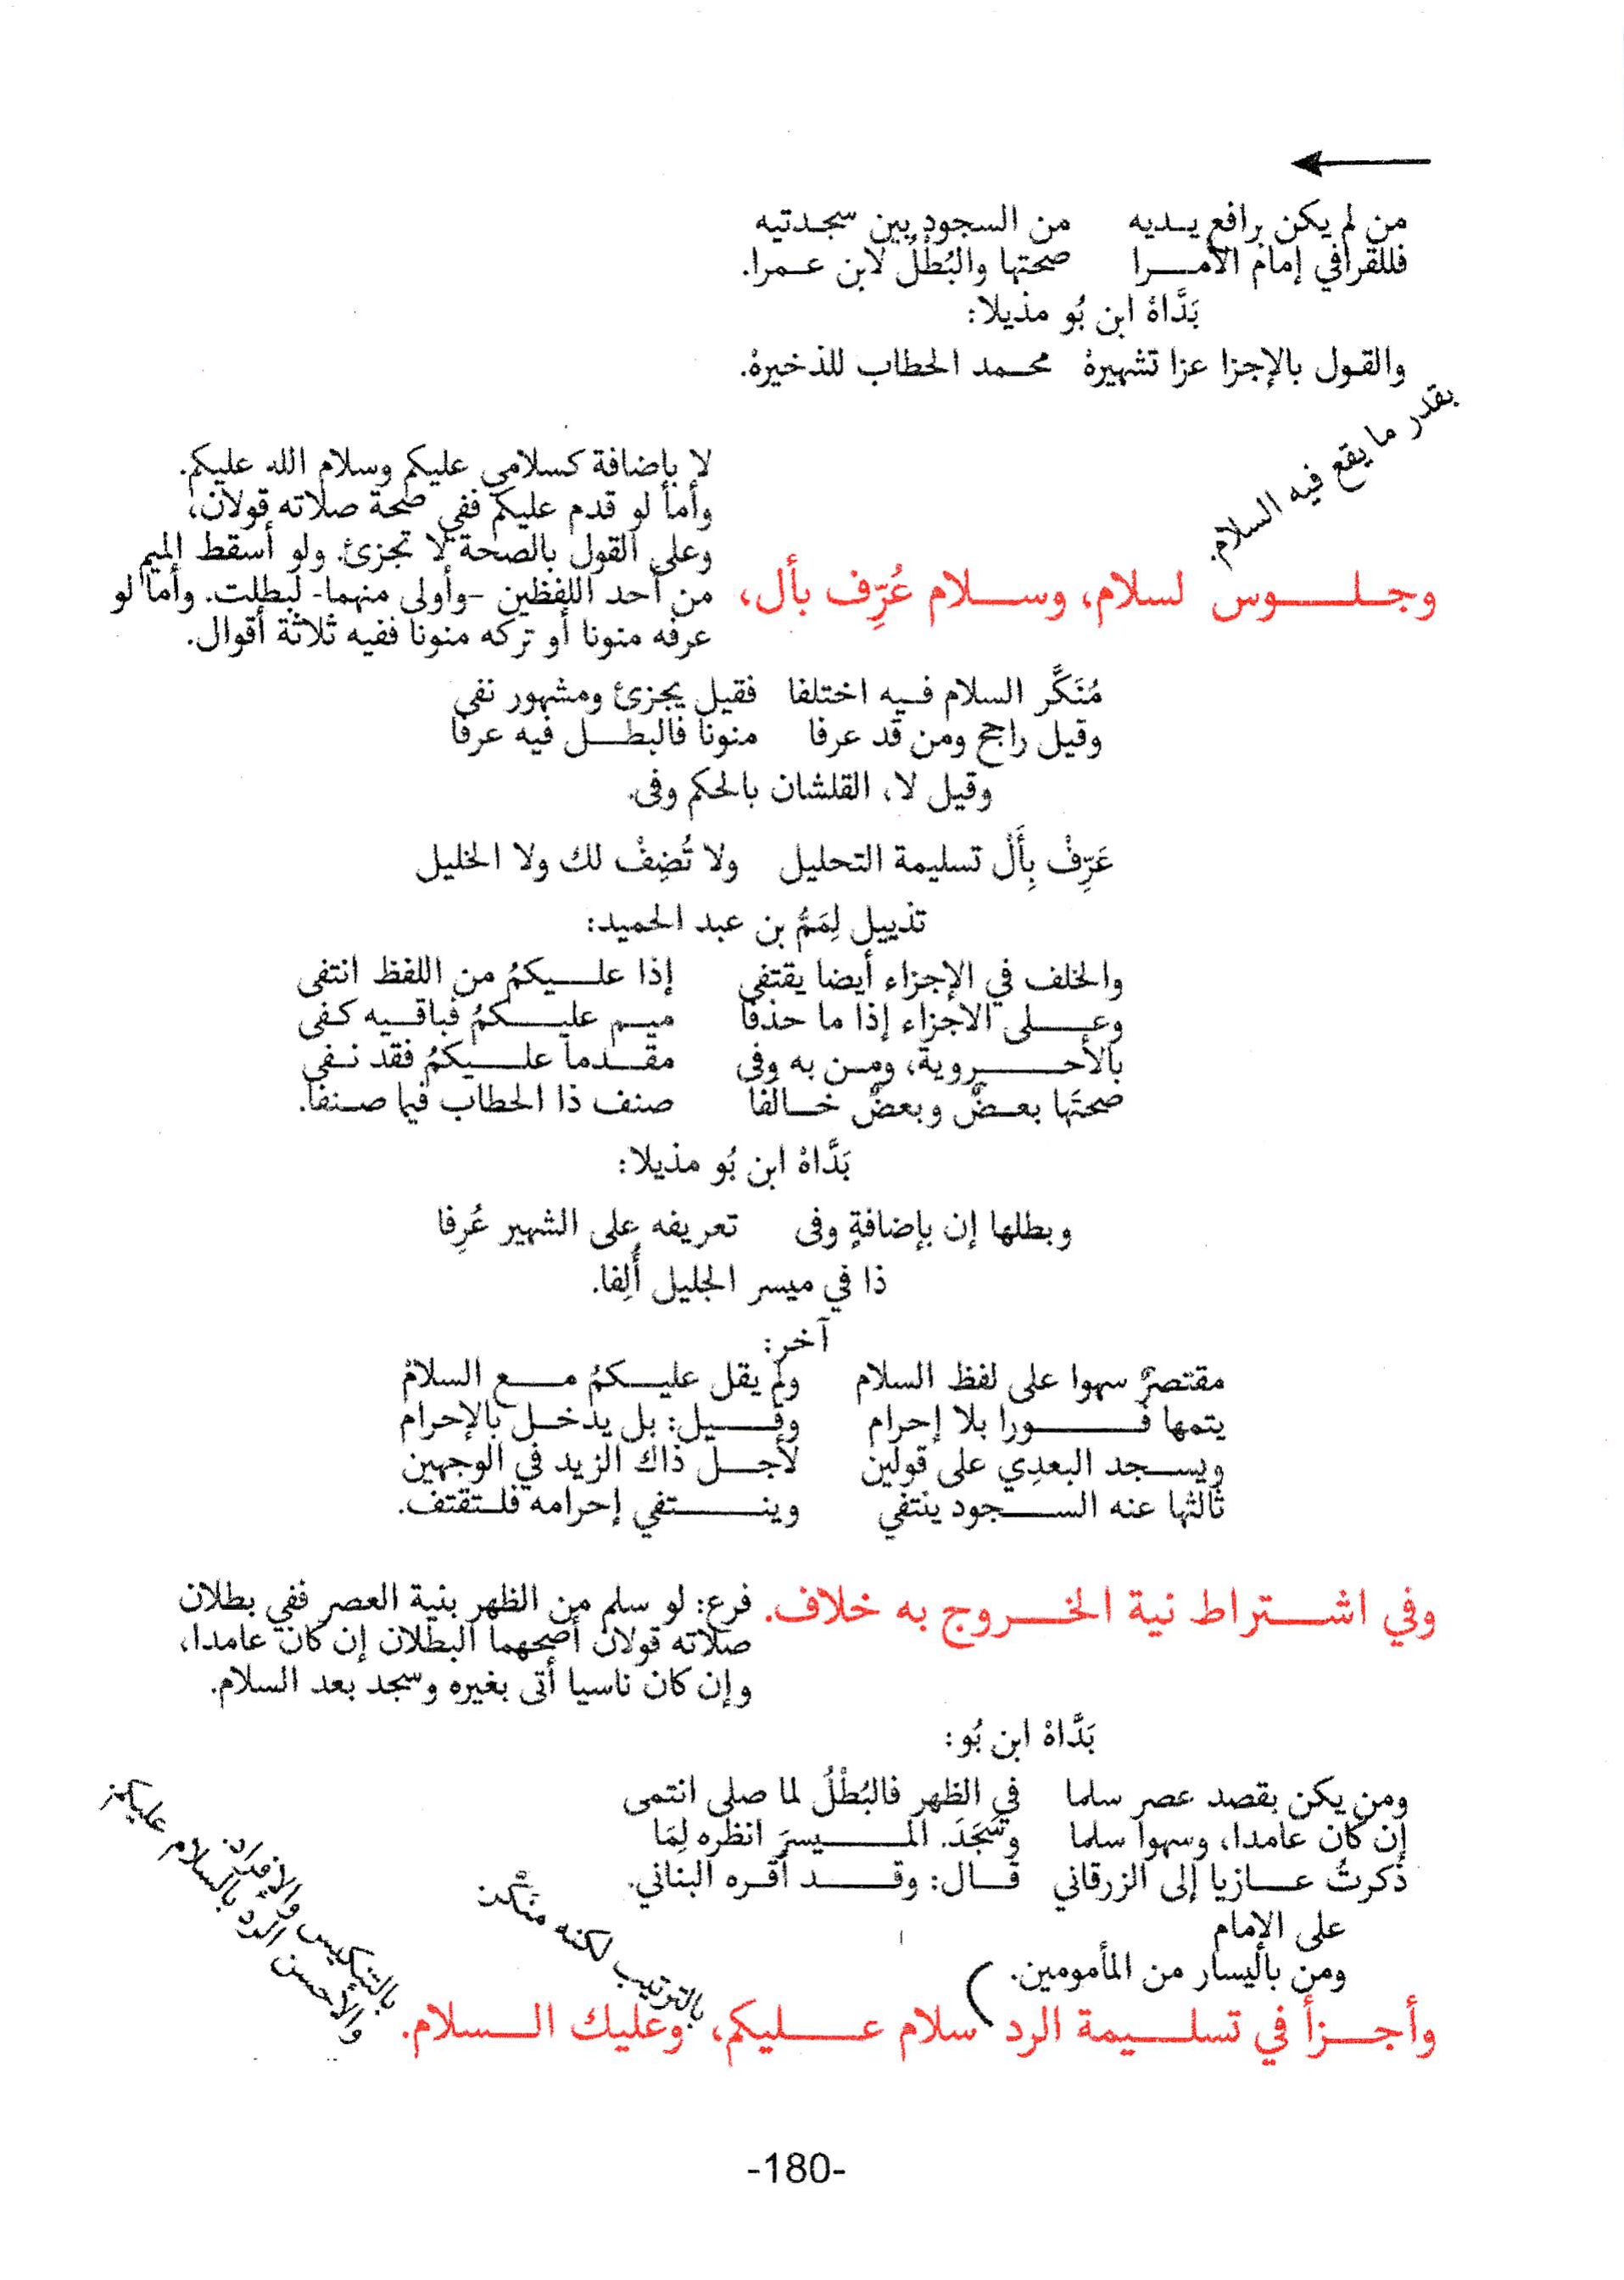 من لم يكن برافع يديه من السجود بين سجدتيه
فللقرافي إمام الأمرا صحتها والبُطْلُ لابن عمرا.
بَدَّاهْ ابن بُو مذيلا:
والقول بالإجزا عزا تشهيرهْ محمد الحطاب للذخيرهْ.
بقدر ما يقع فيه السلام.
وجلوس لسلام، وسلام عُرِّف بأل،
لا بإضافة كسلامي عليكم وسلام الله عليكم.
وأما لو قدم عليكم ففي صحة صلاته قولان،
وعلى القول بالصحة لا تجزئ. ولو أسقط الميم
من أحد اللفظين -وأولى منهما- لبطلت. وأما لو
عرفه منونا أو تركه منونا ففيه ثلاثة أقوال.
مُنَكَّر السلام فيه اختلفا فقيل يجزئ ومشهور نفى
وقيل راجح ومن قد عرفا منونا فالبطل فيه عرفا
وقيل لا، القلشان بالحكم وفى.
عَرِّفْ بِأَلْ تسليمة التحليل ولا تُضِفْ لك ولا الخليل
تذييل لِمَمُّ بن عبد الحميد:
والخلف في الإجزاء أيضا يقتفى إذا عليكمُ من اللفظ انتفى
وعلى الاجزاء إذا ما حذفا ميم عليكمُ فباقيه كفى
بالأحروية، ومن به وفى مقدما عليكمُ فقد نفى
صحتَها بعضٌ وبعضٌ خالفا صنف ذا الحطاب فيما صنفا.
بَدَّاهْ ابن بُو مذيلا:
وبطلها إن بإضافةٍ وفى تعريفه على الشهير عُرِفا
ذا في ميسر الجليل أُلِفا.
آخر:
مقتصرٌ سهوا على لفظ السلام ولم يقل عليكمُ مع السلامْ
يتمها فورا بلا إحرام وقيل: بل يدخل بالإحرام
ويسجد البعدِي على قولين لأجل ذاك الزيد في الوجهين
ثالثها عنه السجود ينتفي وينتفي إحرامه فلتقتف.
وفي اشتراط نية الخروج به خلاف.
فرع: لو سلم من الظهر بنية العصر ففي بطلان
صلاته قولان أصحهما البطلان إن كان عامدا،
وإن كان ناسيا أتى بغيره وسجد بعد السلام.
بَدَّاهْ ابن بُو:
ومن يكن بقصد عصر سلما في الظهر فالبُطْلُ لما صلى انتمى
إن كان عامدا، وسهوا سلما وسَجَدَ. الميسرَ انظره لِمَا
ذكرتُ عازيا إلى الزرقاني قال: وقد أقره البناني.
على الإمام
ومن باليسار من المأمومين.
وأجزأ في تسليمة الرد سلام عليكم، وعليك السلام.
بالترتيب لكنه منَكَّر:
بالتنكيس والإفراد.
والأحسن الرد بالسلام عليكم:
-180-